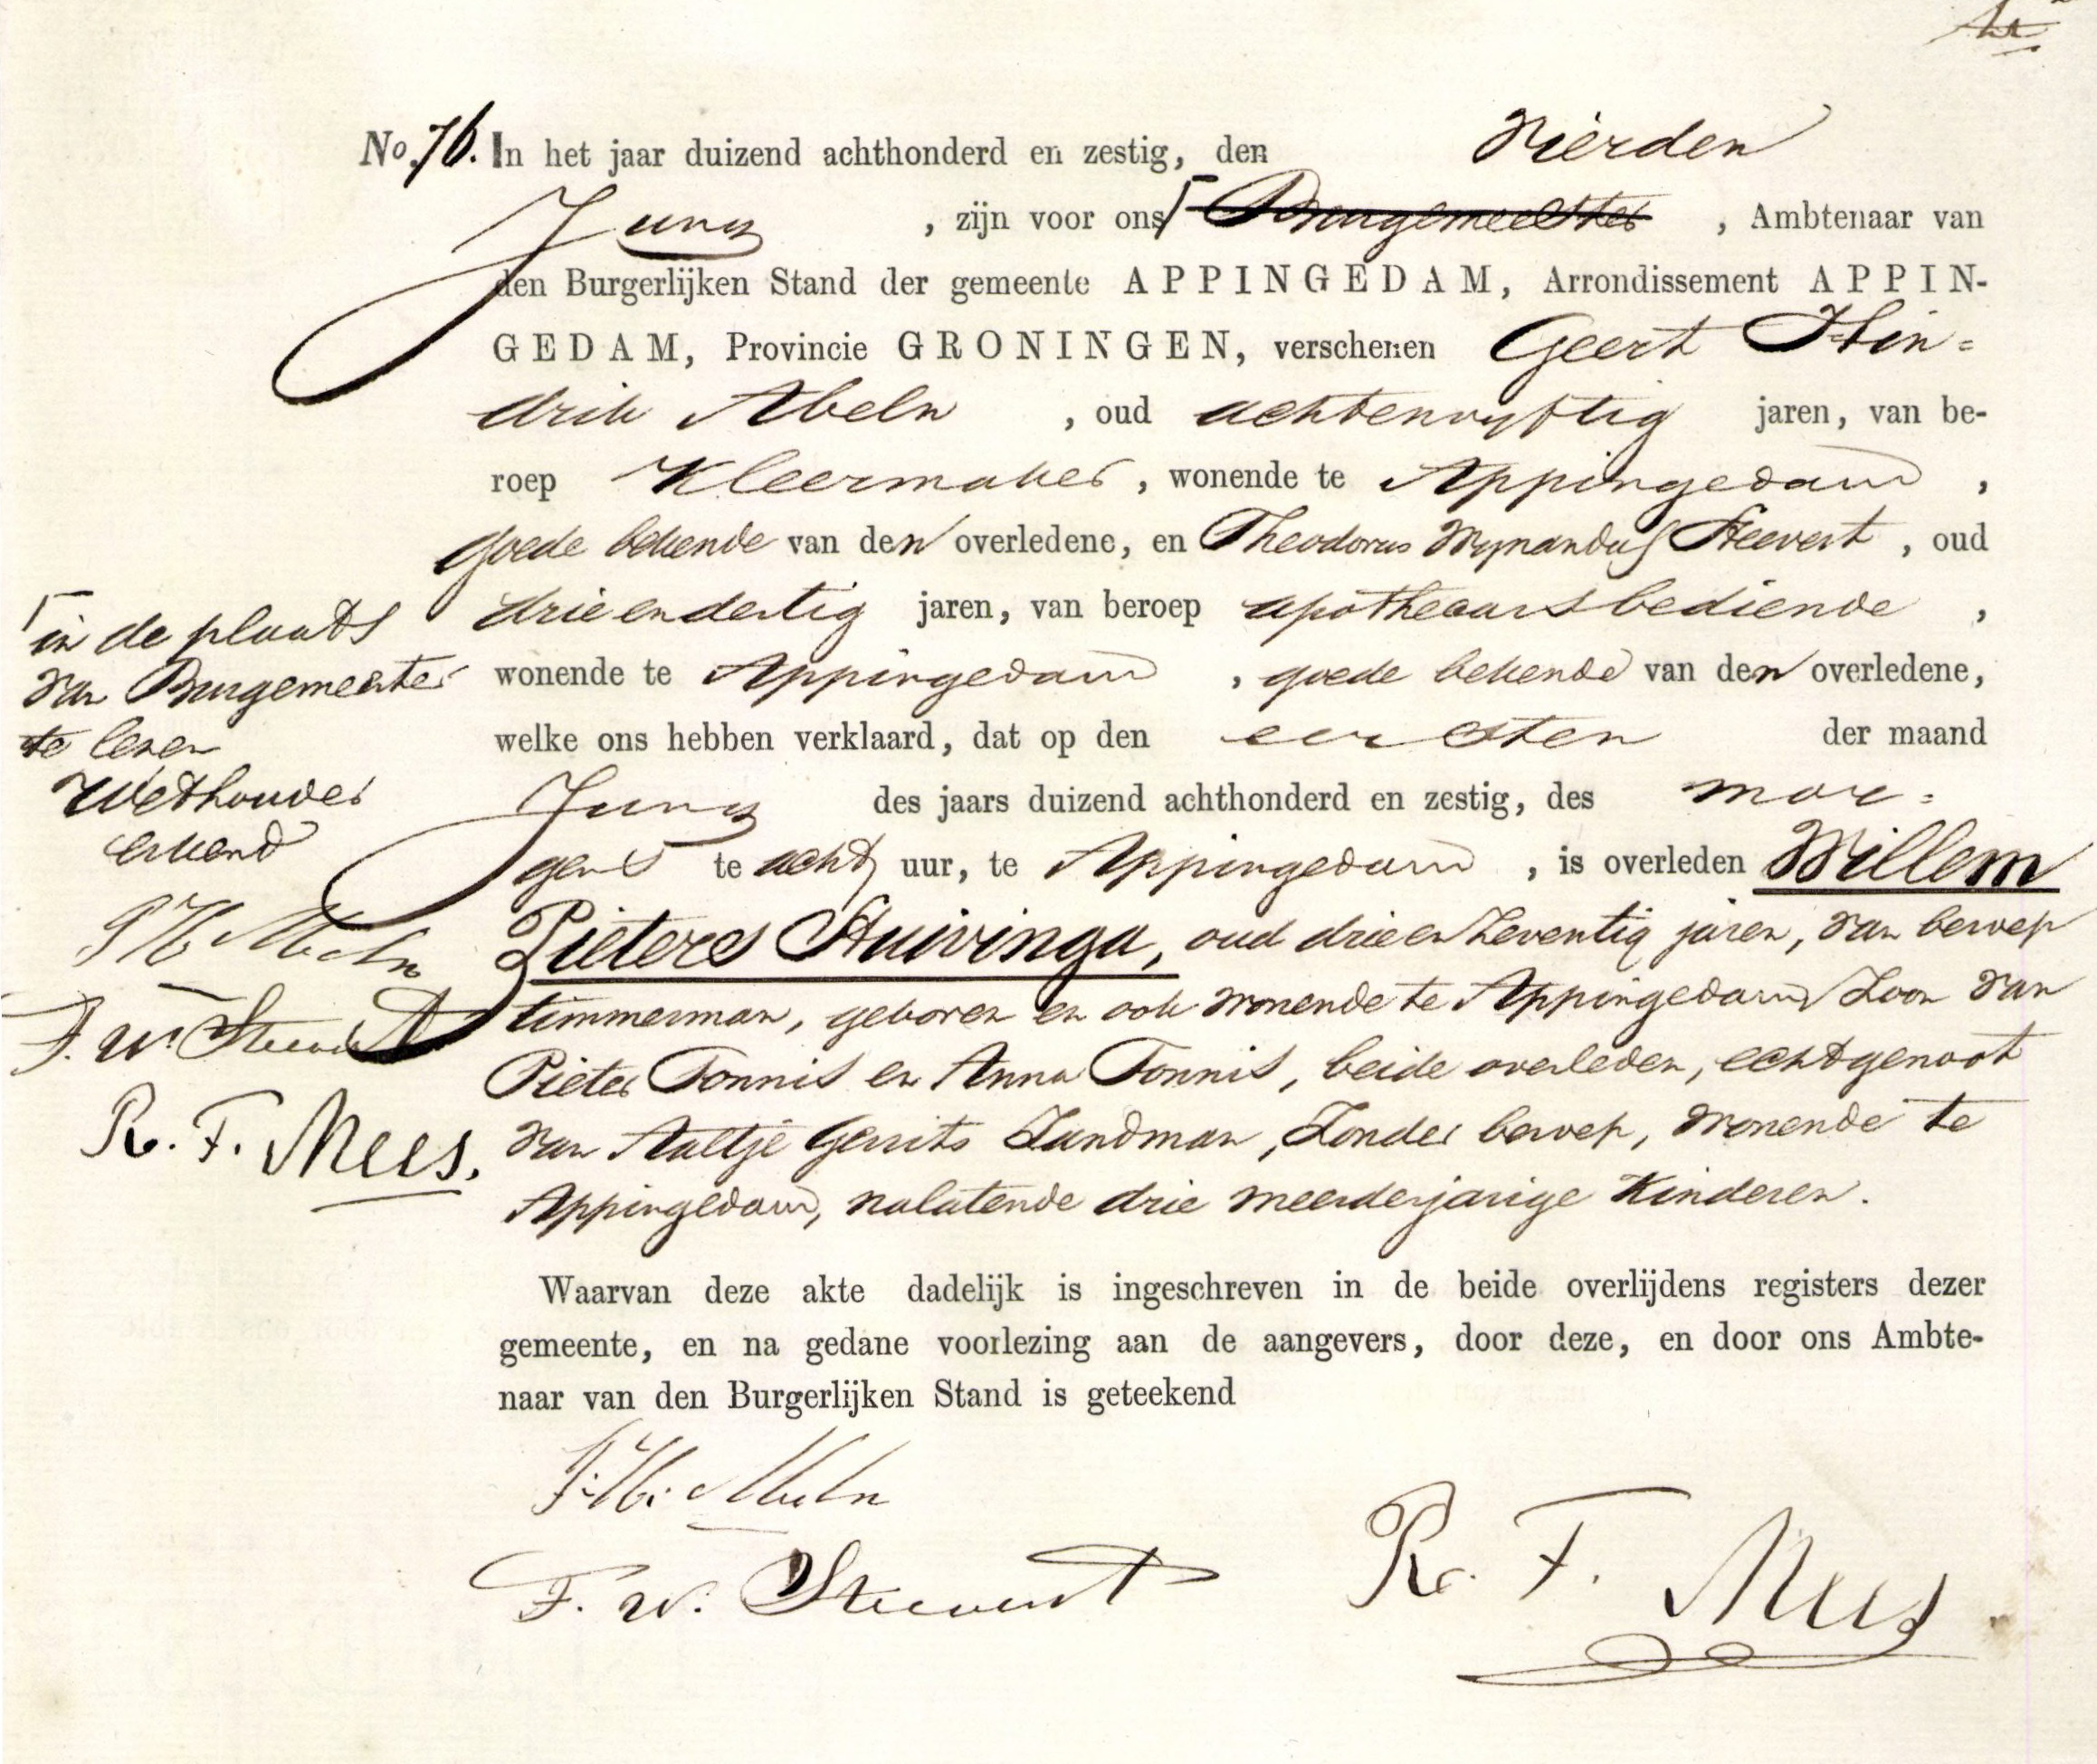 No. 76. In het jaar duizend achthonderd en zestig, den vierden
Juny , zijn voor ons Burgemeester , Ambtenaar van
den Burgerlijken Stand der gemeente APPINGEDAM, Arrondissement APPIN-
GEDAM, Provincie GRONINGEN, verschenen Geert Hin=
drik Abeln , oud achtenvyftig jaren, van be-
roep Kleermaker , wonende te Appingedam ,
goede bekende van den overledene, en Theodorus Wynandus Steevert , oud
drieendertig jaren, van beroep apothecarsbediende ,
wonende te Appingedam , goede bekende van den overledene,
welke ons hebben verklaard, dat op den eersten der maand
Juny des jaars duizend achthonderd en zestig, des mor=
gens te acht uur, te Appingedam , is overleden Willem
Pieters Stuivinga, oud drieenzeventig jaren, van beroep
timmerman, geboren en ook wonende te Appingedam Zoon van
Pieter Tonnis en Anna Tonnis, beide overleden, echtgenoot
van Aaltje Gerrits Landman, Zonder beroep, wonende te
Appingedam, nalatende drie meerderjarige Kinderen.
in de plaats
van Burgemeester
te lezen
Wethouder
erkend
G H Abeln
T. W. Steevert
R. F. Mees.
Waarvan deze akte dadelijk is ingeschreven in de beide overlijdens registers dezer
gemeente, en na gedane voorlezing aan de aangevers, door deze, en door ons Ambte-
naar van den Burgerlijken Stand is geteekend
G. H. Abeln
T. W. Steevert
R. F. Mees